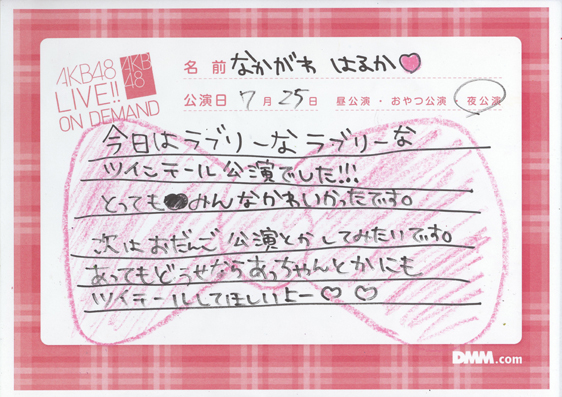 AKB48
LIVE!!
ON DEMAND
AKB
48
名前 なかがわ はるか♡
公演日 7月25日 昼公演・おやつ公演・夜公演
今日はラブリーなラブリーな
ツインテール公演でした!!!
とっても みんなかわいかったです。
次はおだんご公演とかしてみたいです。
あってもどうせならあっちゃんとかにも
ツイテールしてほしいよー♡ ♡
DMM.com